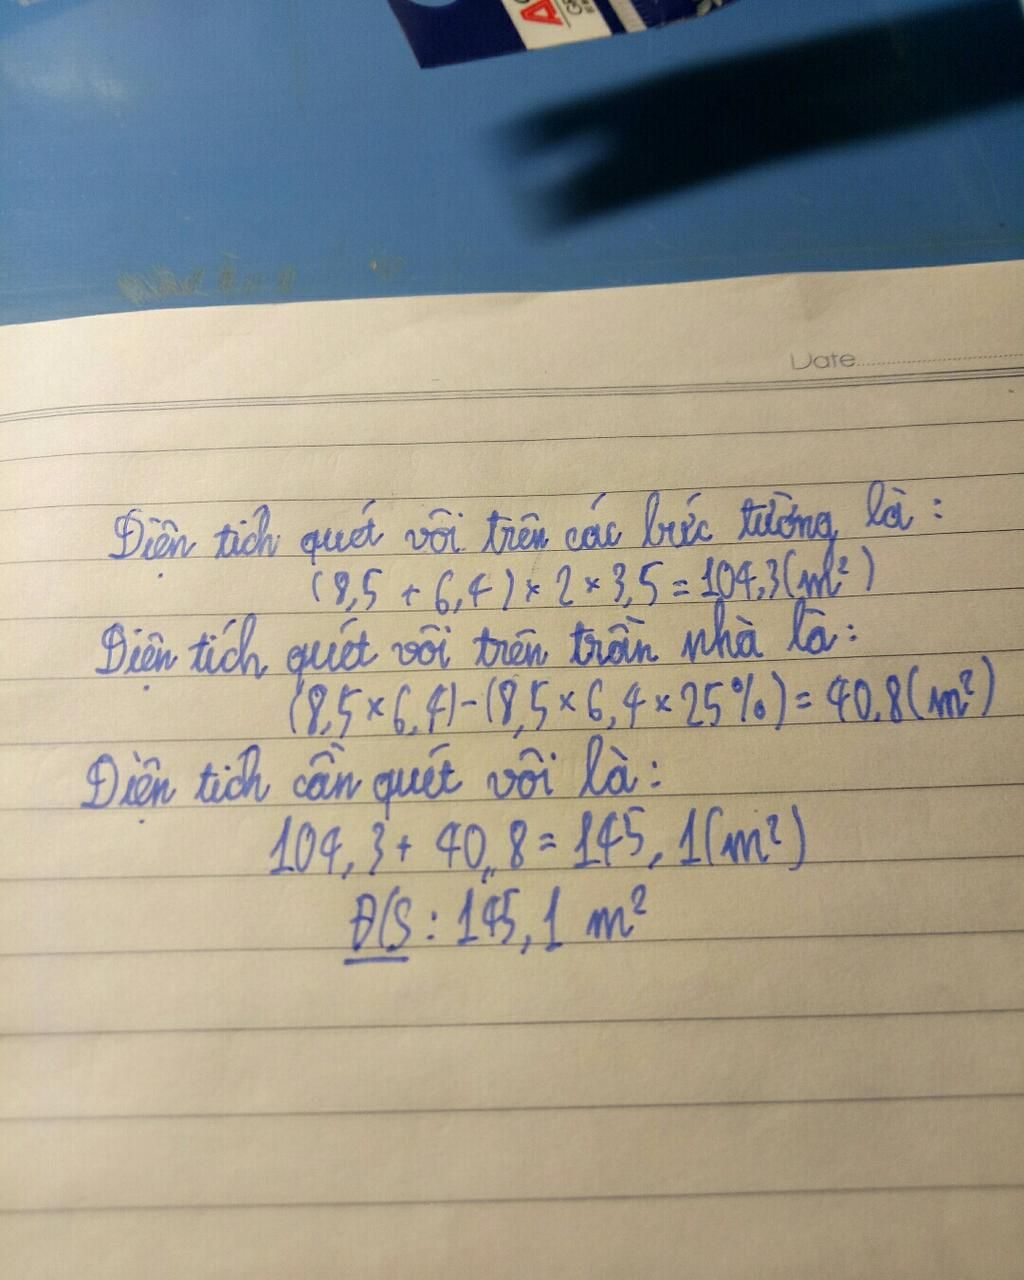 Date
Diện tích quét vôi trên các bức tường là:
(8,5 + 6,4) × 2 × 3,5 = 104,3 (m²)
Diện tích quét vôi trên trần nhà là:
(8,5 × 6,4) - (8,5 × 6,4 × 25%) = 40,8 (m²)
Diện tích cần quét vôi là:
104,3 + 40,8 = 145,1 (m²)
Đ/S : 145,1 m²